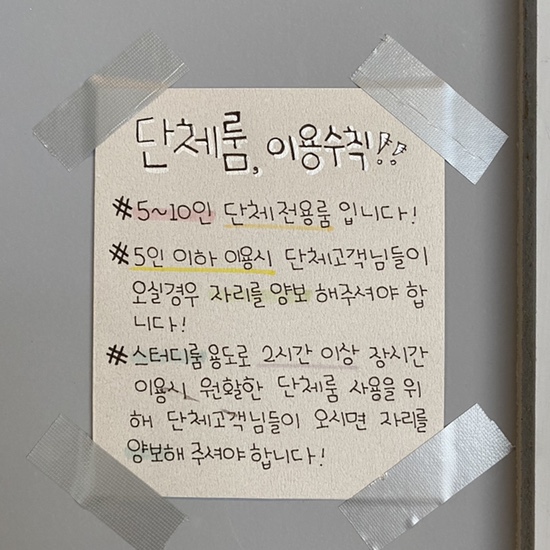 단체룸, 이용수칙!!
#5~10인 단체전용룸 입니다!
#5인 이하 이용시 단체고객님들이
오실경우 자리를 양보 해주셔야 합
니다!
#스터디룸용도로 2시간 이상 장시간
이용시 원활한 단체룸 사용을 위
해 단체고객님들이 오시면 자리를
양보해 주셔야 합니다!